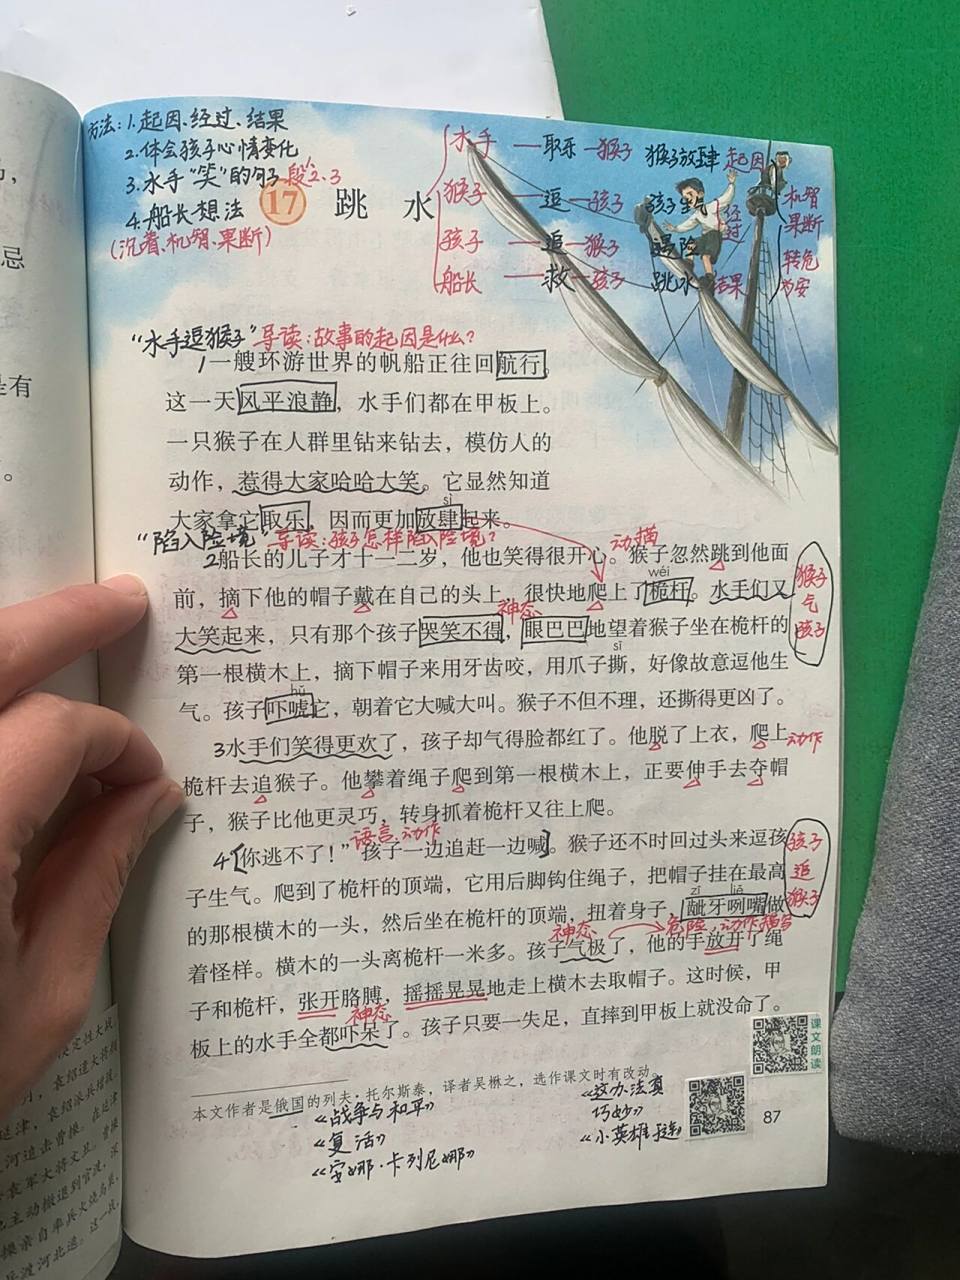 方法:1.起因、经过、结果
2.体会孩子心情变化
3.水手“笑”的句子 段1、2、3
4.船长想法
(沉着、机智、果断)
17 跳水
水手—取乐—猴子 猴子放肆 起因
猴子—逗—孩子 孩子生气 经过
孩子—追—猴子 遇险
船长—救—孩子 跳水 结果
机智
果断
转危
为安
“水手逗猴子”导读:故事的起因是什么?
1一艘环游世界的帆船正往回航行。
这一天风平浪静,水手们都在甲板上。
一只猴子在人群里钻来钻去,模仿人的
动作,惹得大家哈哈大笑。它显然知道
sì
大家拿它取乐,因而更加放肆起来。
“陷入险境”导读:孩子怎样陷入险境?
动描
2船长的儿子才十一二岁,他也笑得很开心。猴子忽然跳到他面
wéi
前,摘下他的帽子戴在自己的头上,很快地爬上了桅杆。水手们又
神态
大笑起来,只有那个孩子哭笑不得,眼巴巴地望着猴子坐在桅杆的
sī
第一根横木上,摘下帽子来用牙齿咬,用爪子撕,好像故意逗他生
hǔ
气。孩子吓唬它,朝着它大喊大叫。猴子不但不理,还撕得更凶了。
猴子
气
孩子
3水手们笑得更欢了,孩子却气得脸都红了。他脱了上衣,爬上
动作
桅杆去追猴子。他攀着绳子爬到第一根横木上,正要伸手去夺帽
子,猴子比他更灵巧,转身抓着桅杆又往上爬。
语言、动作
4“你逃不了!”孩子一边追赶一边喊。猴子还不时回过头来逗孩
子生气。爬到了桅杆的顶端,它用后脚钩住绳子,把帽子挂在最高
zī liě
的那根横木的一头,然后坐在桅杆的顶端,扭着身子,龇牙咧嘴做
孩子
追
猴子
神态 危险,动作描写
着怪样。横木的一头离桅杆一米多。孩子气极了,他的手放开了绳
子和桅杆,张开胳膊,摇摇晃晃地走上横木去取帽子。这时候,甲
神态
板上的水手全都吓呆了。孩子只要一失足,直摔到甲板上就没命了。
课文朗读
本文作者是俄国的列夫·托尔斯泰,译者吴楙之,选作课文时有改动。
《战争与和平》
《复活》
《安娜·卡列尼娜》
《这办法真
巧妙》
87